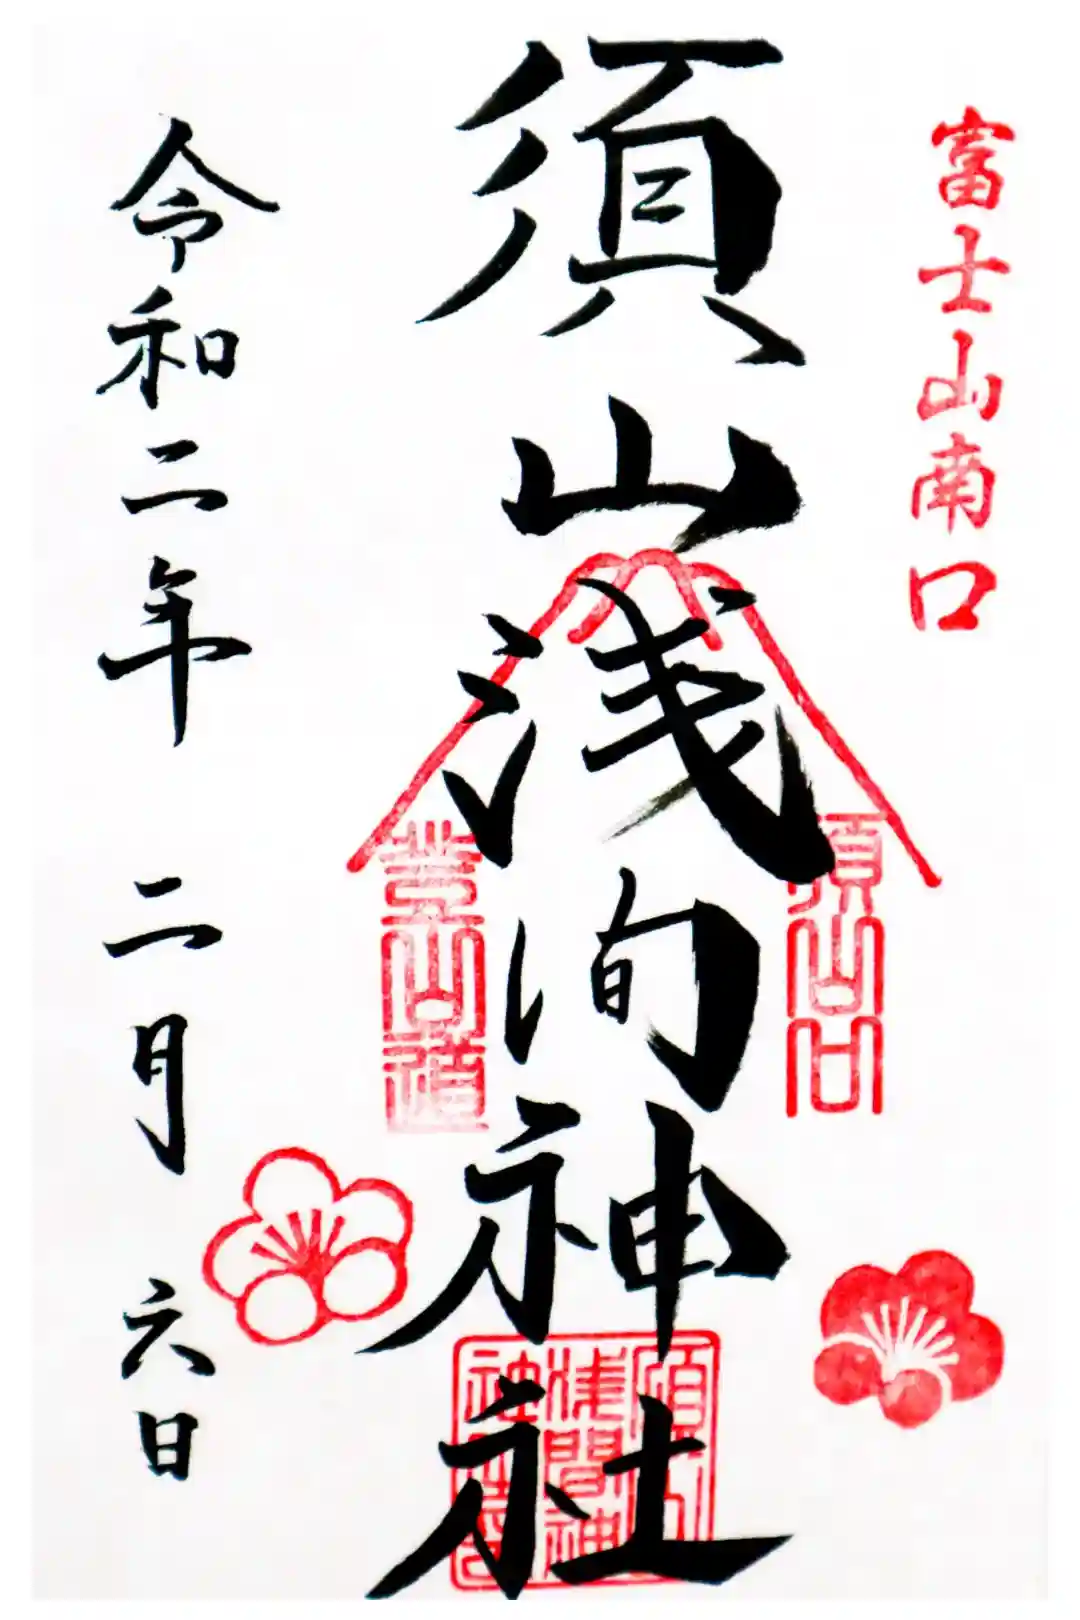 富士山南口
須山浅间神社
須山口
登山道
須山浅間神社
令和二年　二月　六日